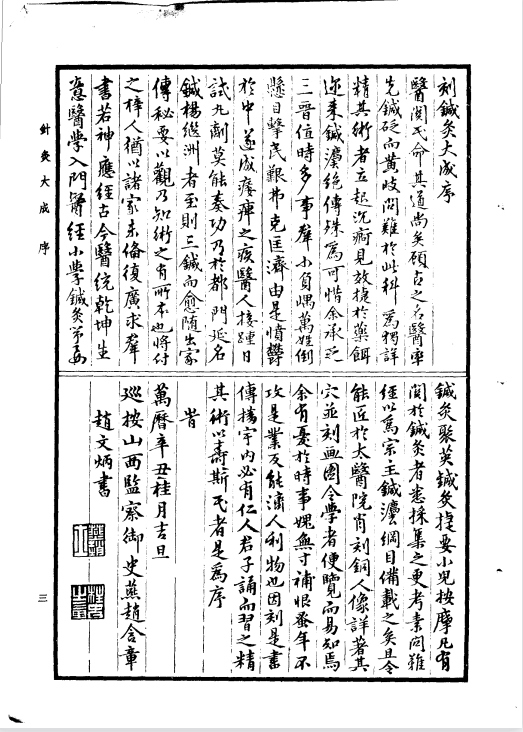 刻鍼灸大成序
醫関民命其道尚矣顧古之名醫率
先鍼砭而黃岐問難於此科為獨詳
精其術者立起沉痾見效捷於藥餌
邇來鍼灋絶傳殊為可惜余承乏
三晉值時多事羣小負嵎萬姓倒
懸目擊民艱弗克匡濟由是憤欝
於中遂成痿痺之疾醫人接踵日
試丸劑莫能奏功乃於都門延名
鍼楊繼洲者至則三鍼而愈隨出家
傳秘要以觀乃知術之有所本也將付
之梓人猶以諸家未備復廣求羣
書若神應經古今醫統乾坤生
意醫學入門醫經小學鍼灸節要
鍼灸聚英鍼灸捷要小兒按摩凡有
関於鍼灸者悉採集之更考素問難
經以為宗主鍼灋綱目備載之矣且令
能匠於太醫院肖刻銅人像詳著其
穴並刻画圖令學者便覽而易知焉
余有憂於時事愧無寸補恨蚤年不
攻是業反能濟人利物也因刻是書
傳播宇內必有仁人君子誦而習之精
其術以壽斯民者是為序
旹
萬曆辛丑桂月吉旦
巡按山西監察御史燕趙含章
趙文炳書
針灸大成 序
三